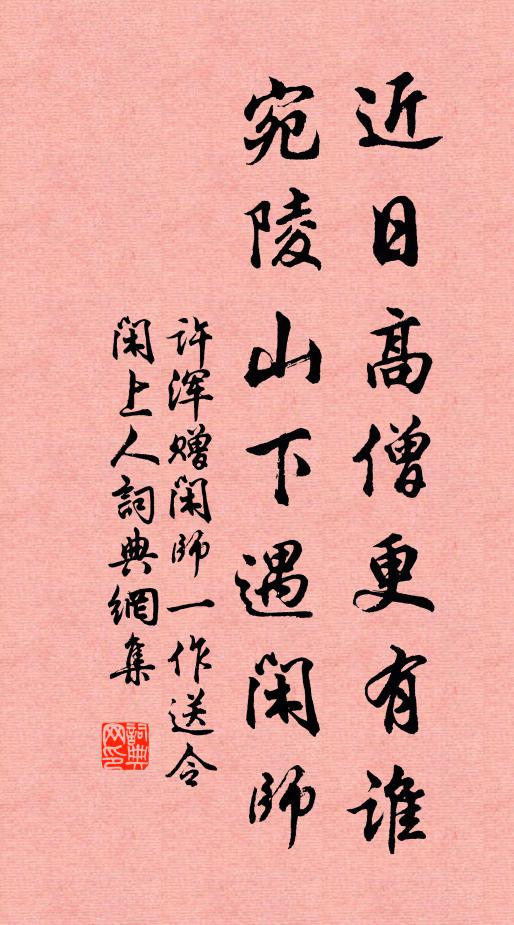 近日高僧更有谁
宛陵山下遇闲师
许浑赠闲师一作送令
闲上人詞典網集
詞典
网印